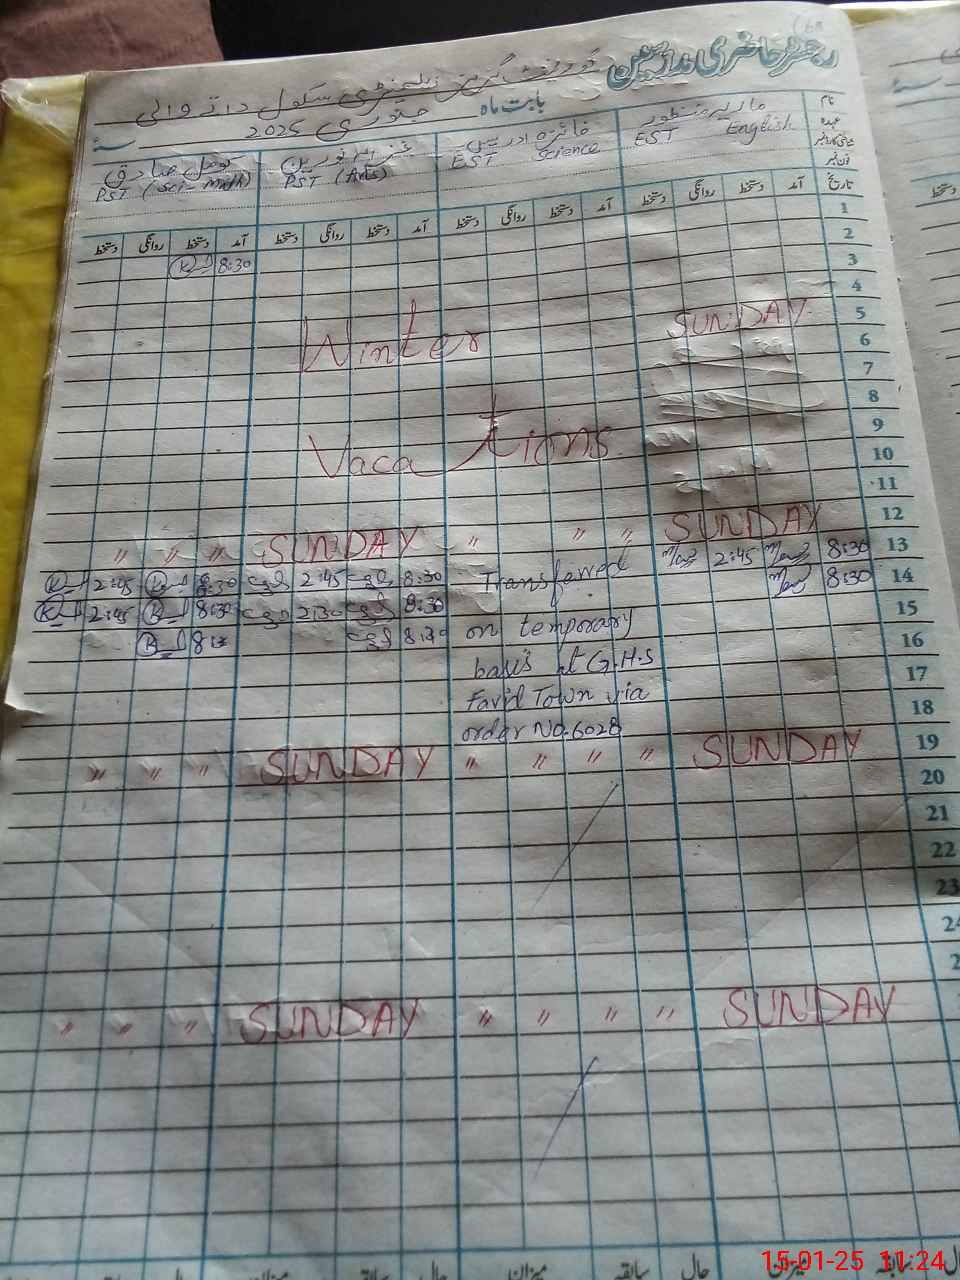 رجسٹر حاضری ملازمین
گورنمنٹ گرلز ایلیمنٹری سکول دانے والی
بابت ماہ جنوری 2025 سنہ
نام ماریہ منظور فائزہ ادریس کومل صادق
عہدہ EST English EST Science PST (Arts) PST (Sci-Math)
فون نمبر
تاریخ آمد دستخط روانگی دستخط آمد دستخط روانگی دستخط آمد دستخط روانگی دستخط آمد دستخط روانگی دستخط
1
2
3 8:30
4
5 SUNDAY
6 Winter
7
8
9
10 Vacations
11
12 SUNDAY " " " SUNDAY " " "
13 8:30 2:45 Transferred 8:30 2:45 8:30 2:45
14 8:30 8:30 2:30 8:30 2:45
15 on temporary 8:30 8:3
16 basis at G.H.S
17 Farid Town via
18 order No.6028
19 SUNDAY " " " " SUNDAY " " "
20
21
22
23
24
2
SUNDAY " " " " SUNDAY " " "
سابقہ حال میزان سابقہ حال میزان
15-01-25 11:24